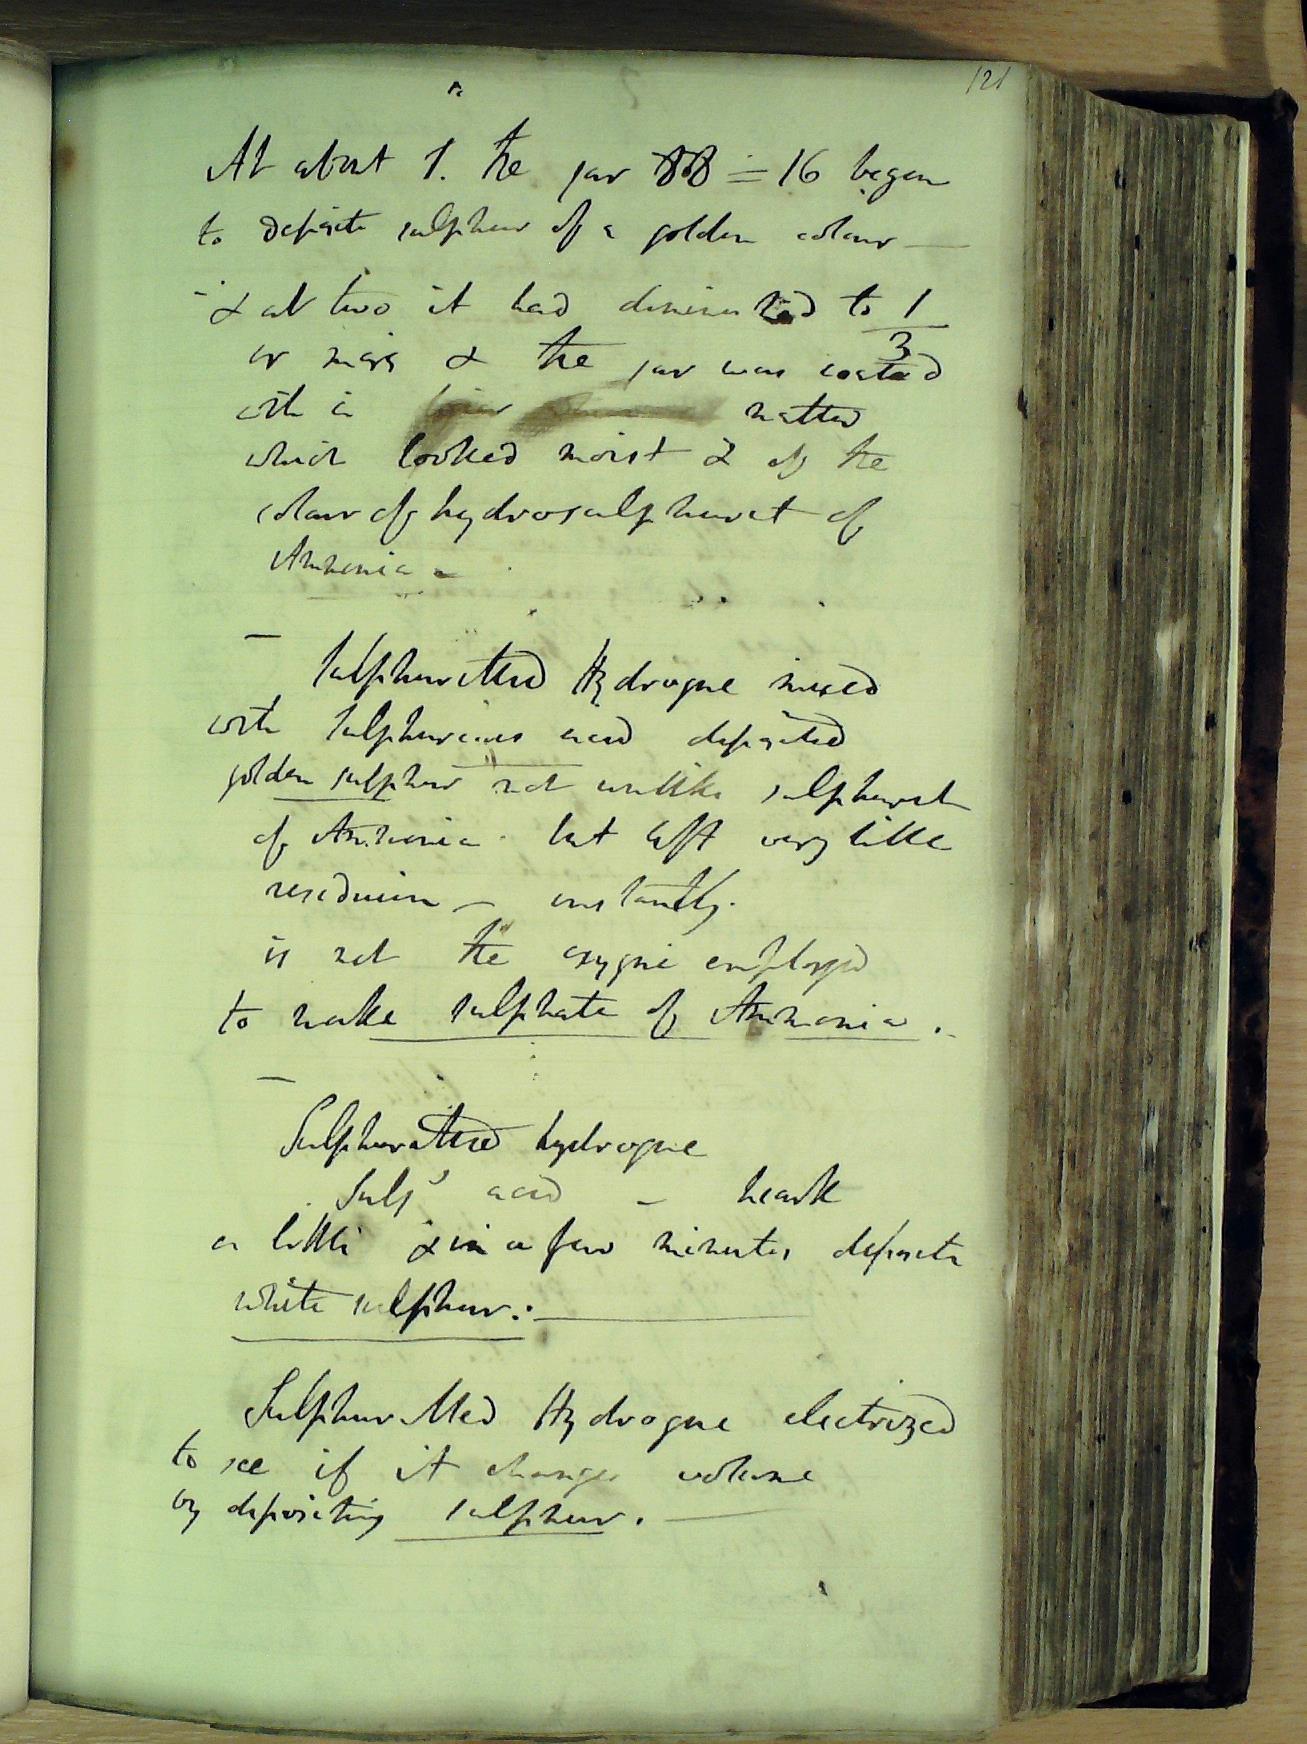 121
At about 1. the jar 88 = 16 began
to deposite sulphur of a golden colour —
- & at two it had diminished to 1/3
or more & the jar was coated
with a matter
which looked moist & of the
colour of hydrosulphuret of
Ammonia -
— Sulphuretted Hydrogne mixed
with Sulphureous acid deposited
golden sulphur not unlike sulphuret
of Ammonia. but left very little
residuum — instantly.
is not the oxygne employed
to make sulphate of Ammonia.
— Sulphuretted hydrogne
Sulps acid —
a little & in a few minutes deposite
white sulphur.: —
Sulphuretted Hydrogne electrized
to see if it changes volume
by depositing sulphur. —